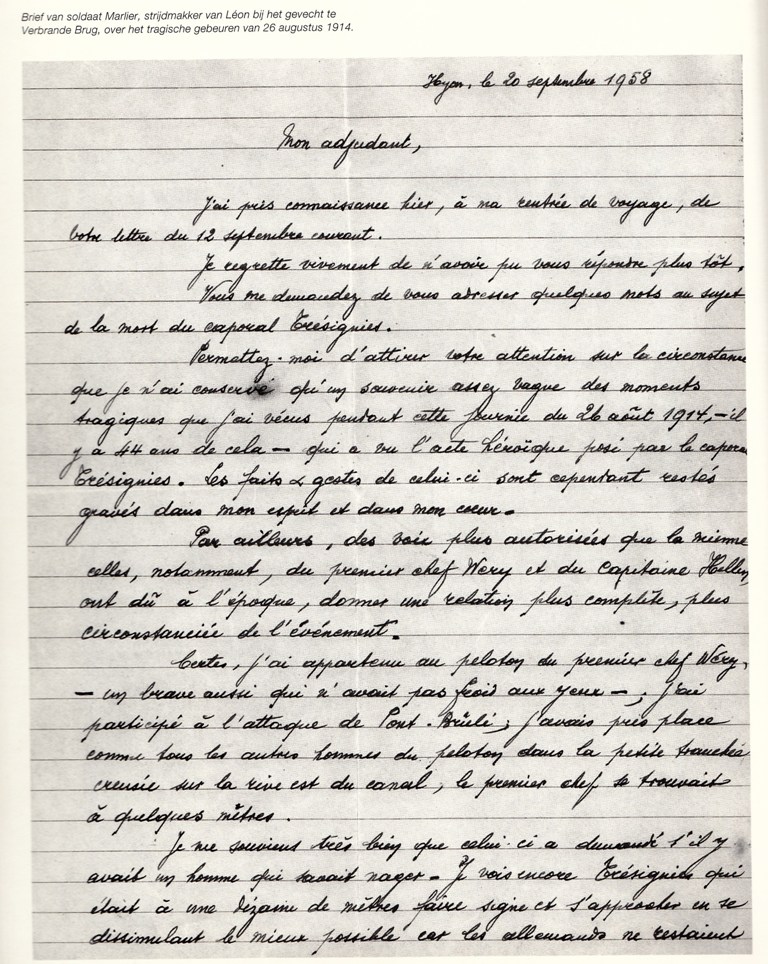 Brief van soldaat Marlier, strijdmakker van Léon bij het gevecht te
Verbrande Brug, over het tragische gebeuren van 26 augustus 1914.
Hyon, le 20 septembre 1958
Mon adjudant,
J'ai pris connaissance hier, à ma rentrée de voyage, de
votre lettre du 12 septembre courant.
Je regrette vivement de n'avoir pu vous répondre plus tôt.
Vous me demandez de vous adresser quelques mots au sujet
de la mort du caporal Trésignies.
Permettez-moi d'attirer votre attention sur la circonstance
que je n'ai conservé qu'un souvenir assez vague des moments
tragiques que j'ai vécus pendant cette journée du 26 août 1914, – il
y a 44 ans de cela – qui a vu l'acte héroïque posé par le caporal
Trésignies. Les faits & gestes de celui-ci sont cependant restés
gravés dans mon esprit et dans mon cœur.
Par ailleurs, des voix plus autorisées que la mienne
celles, notamment, du premier chef Wéry et du Capitaine
ont dû à l'époque, donner une relation plus complète, plus
circonstanciée de l'événement.
Certes, j'ai appartenu au peloton du premier chef Wéry,
– un brave aussi qui n'avait pas froid aux yeux – ; j'ai
participé à l'attaque de Pont-Brûlé ; j'avais pris place
comme tous les autres hommes du peloton dans la petite tranchée
creusée sur la rive est du canal ; le premier chef se trouvait
à quelques mètres.
Je me souviens très bien que celui-ci a demandé s'il y
avait un homme qui savait nager. Je vois encore Trésignies qui
était à une dizaine de mètres faire signe et s'approcher en se
dissimulant le mieux possible car les allemands ne restaient